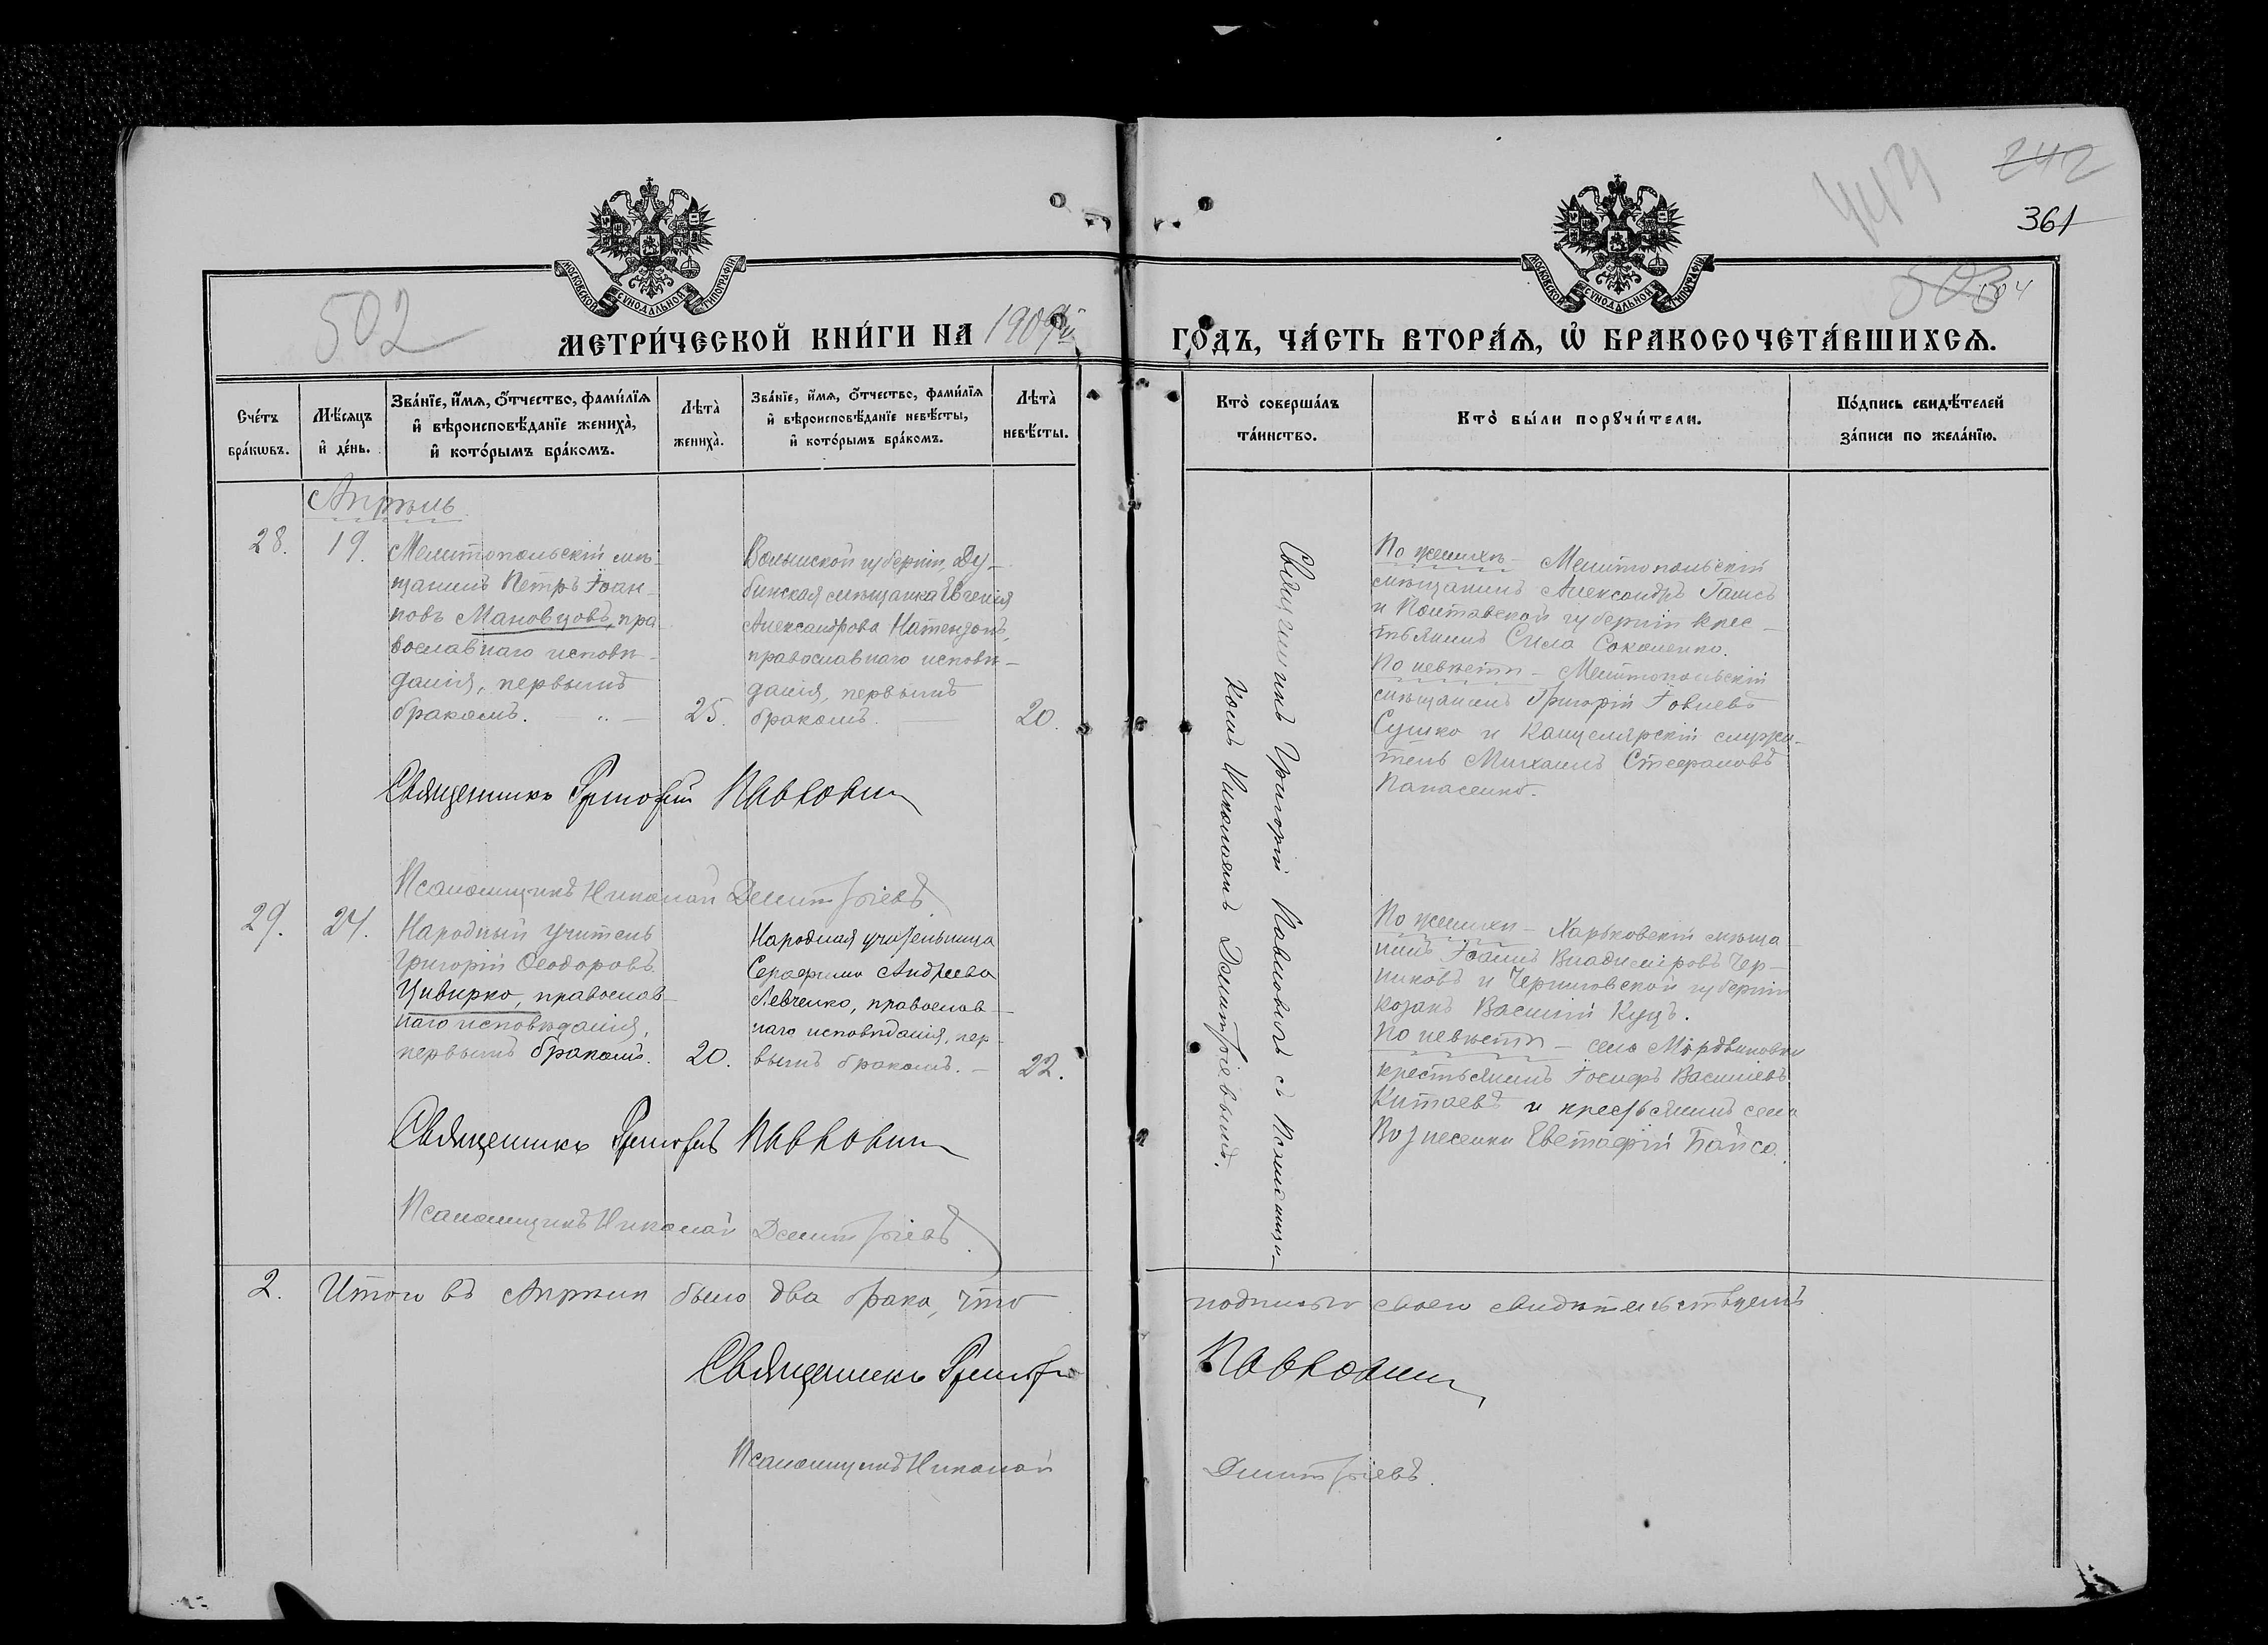 242
361
502
504
МОСКОВСКОЙ СѴНОДАЛЬНОЙ ТИПОГРАФІИ
МОСКОВСКОЙ СѴНОДАЛЬНОЙ ТИПОГРАФІИ
МЕТРИ́ЧЕСКОЙ КНИ́ГИ НА 1909й
ГО́ДЪ, ЧА́СТЬ ВТОРА́Ѧ, Ѽ БРАКОСОЧЕТА́ВШИХСѦ.
Сче́тъ бра́кѡвъ.
Мѣ́сѧцъ и҆ де́нь.
Зва́нїе, и҆́мѧ, ѻ҆́тчество, фами́лїѧ и҆ вѣроисповѣ́данїе жениха̀, и҆ кото́рымъ бра́комъ.
Лѣта̀ жениха̀.
Зва́нїе, и҆́мѧ, ѻ҆́тчество, фами́лїѧ и҆ вѣроисповѣ́данїе невѣ́сты, и҆ кото́рымъ бра́комъ.
Лѣта̀ невѣ́сты.
Кто̀ соверша́лъ та́инство.
Кто̀ бы́ли порꙋчи́тели.
По́дпись свидѣ́телей за́писи по жела́нїю.
Апрѣль
28.
19.
Мелитопольскій мѣ-
щанинъ Петръ Іоан-
новъ Мановцовъ, пра
вославнаго исповѣ-
данія, первымъ
бракомъ.
25.
Волынской губерніи, Ду-
бинская мѣщанка Евгенія
Александрова
православнаго исповѣ-
данія, первымъ
бракомъ.
20.
Священникъ Григорій Павловичъ съ Псаломщи-
комъ Николаемъ Димитріевымъ.
По женихѣ - Мелитопольскій
мѣщанинъ Александръ Гансъ
и Полтавской губерніи крес-
тьянинъ Сила Соколенко.
По невѣстѣ - Мелитопольскій
мѣщанинъ Григорій Іовлевъ
Сушко и Канцелярскій служи-
тель Михаилъ Стефановъ
Панасенко.
Священникъ Григорій Павловичъ
Псаломщикъ Николай Димитріевъ
29.
24.
Народный учитель
Григорій Ѳеодоровъ
Цивирко, православ-
наго исповѣданія,
первымъ бракомъ.
20.
Народная учительница
Серафима Андреева
Левченко, православ-
наго исповѣданія, пер-
вымъ бракомъ. -
22.
По женихѣ - Харьковскій мѣща
нинъ Іоаннъ Владиміровъ Чер-
никовъ и Черниговской губерніи
козакъ Василій Куцъ.
По невѣстѣ - села Мордвиновки
крестьянинъ Іосифъ Васильевъ
Китаевъ и крестьянинъ села
Вознесенки Евстафій
Священникъ Григорій Павловичъ
Псаломщикъ Николай Димитріевъ
2. Итого въ Апрѣлѣ было два брака, что подписью своею свидѣтельствуемъ
Священникъ Григорій Павловичъ
Псаломщикъ Николай Димитріевъ.